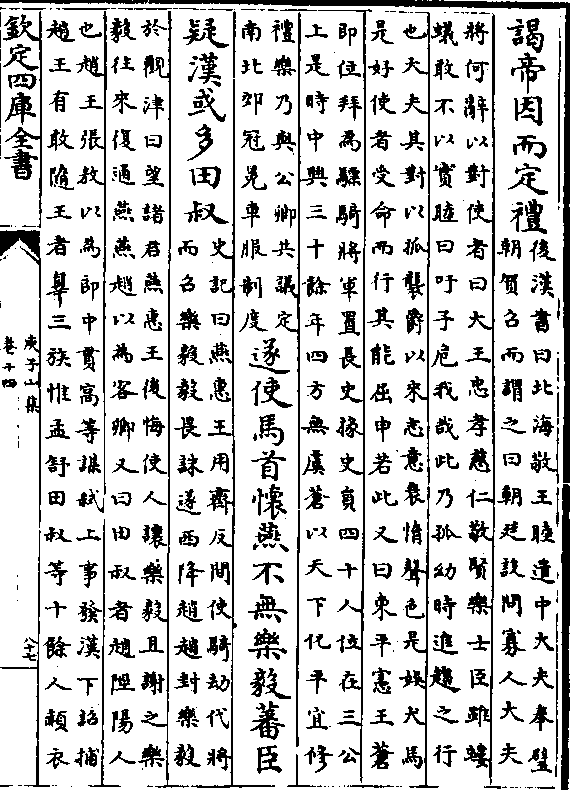 謁帝因而定禮後漢書曰北海敬王睦遣中大夫奉璧
朝賀召而謂之曰朝廷設問寡人大夫
將何辭以對使者曰大王忠孝慈仁敬賢樂士臣雖螻
蟻敢不以實睦曰吁子危我哉此乃孤幼時進趨之行
也大夫其對以孤襲爵以來志意衰惰聲色是娛犬馬
是好使者受命而行其能屈申若此又曰東平憲王蒼
即位拜為驃騎將軍置長史掾史員四十人位在三公
上是時中興三十餘年四方無虞蒼以天下化平宜修
禮樂乃與公卿共議定
南北郊冠冕車服制度遂使馬首懷燕不無樂毅蕃臣
疑漢或多田叔史記曰燕惠王用齊反間使騎劫代將
而召樂毅毅畏誅遂西降趙趙封樂毅
於觀津曰望諸君燕惠王後悔使人讓樂毅且謝之樂
毅往來復通燕燕趙以為客卿又曰田叔者趙陘陽人
也趙王張敖以為郎中貫高等謀弒上事發漢下詔捕
趙王有敢隨王者辠三族惟孟舒田叔等十餘人頳衣
欽定四庫全書
庾子山集
卷十四
八十七